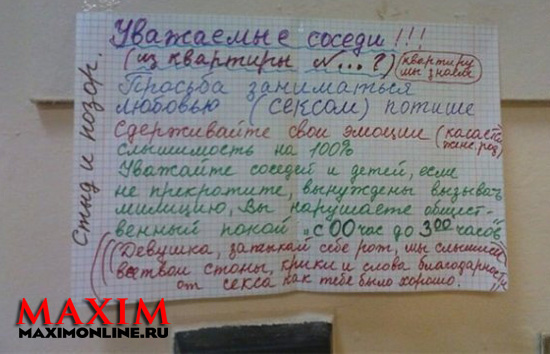 Уважаемые соседи!!!
(из квартиры №...?) (квартиру мы знаем)
Просьба заниматься
любовью (СЕКСОМ) потише
Сдерживайте свои эмоции (касается женс. рода)
слышимость на 100%
Уважайте соседей и детей, если
не прекратите, вынуждены вызывать
милицию, Вы нарушаете общест-
венный покой с 00 час до 3 00 часов
(((Девушка, затыкай себе рот, мы слышим
все твои стоны, крики и слова благодарности
от секса как тебе было хорошо.
Стыд и позор.
MAXIM
MAXIMONLINE.RU